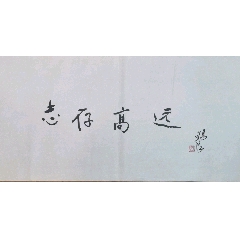 志存高远